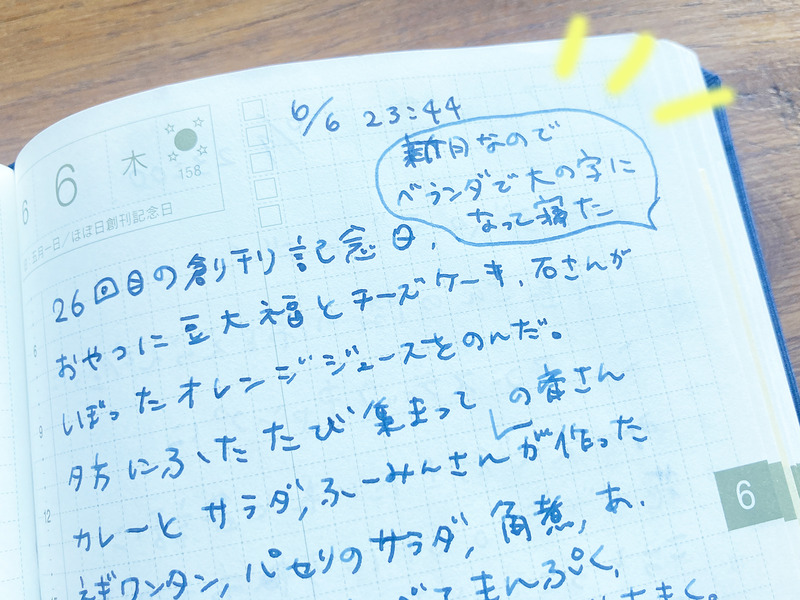 6/6 23:44
新月なので
ベランダで大の字に
なって寝た
6
6
木
158
五月一日/ほぼ日創刊記念日
26回目の創刊記念日、
おやつに豆大福とチーズケーキ、石さんが
しぼったオレンジジュースをのんだ。
夕方にふたたび集まって
さん
が作った
カレーとサラダ、ふーみんさん
ねぎワンタン、パセリのサラダ、角煮、あ、
べてまんぷく、
6
8
9
12